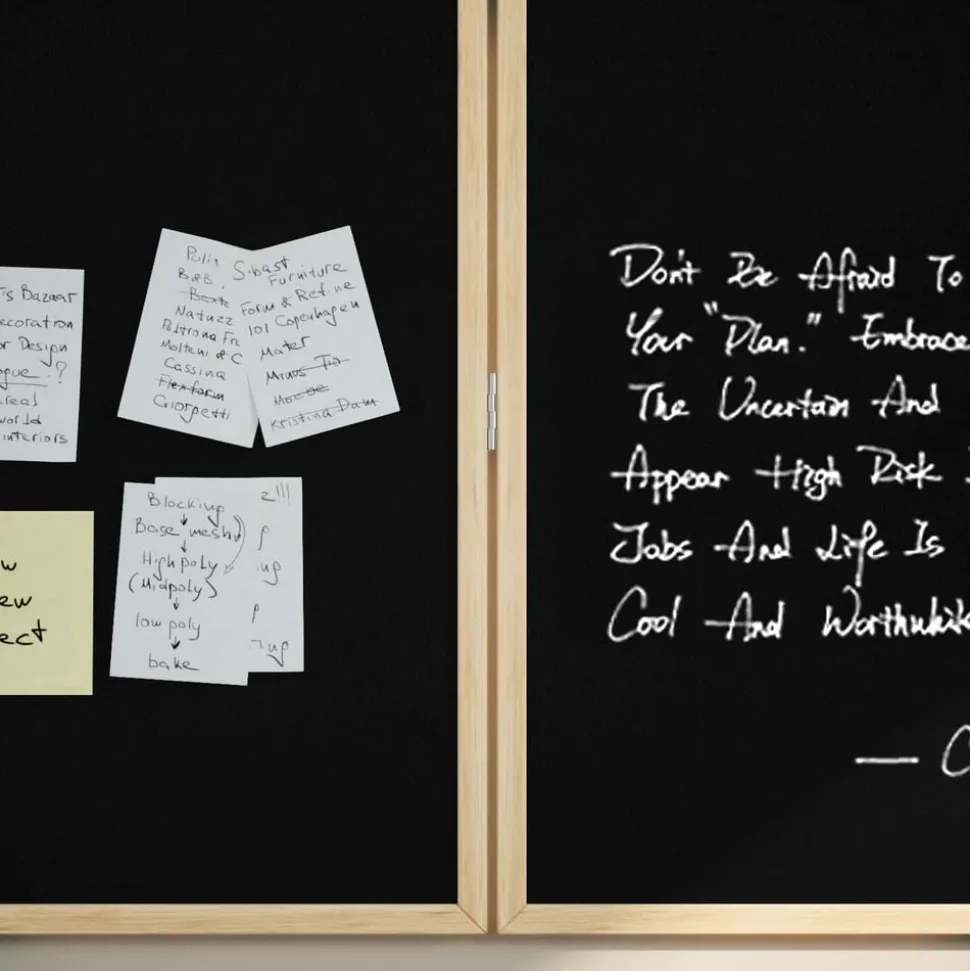 is Bazaar
ecoration
or Design
ogue . ?
real
world
interiors
w
ew
ect
B&B
Natuzz
Poltrona Fr
Molteni & C
Cassina
Flexform
Giorgetti
Sibast
Furniture
Form & Refine
101 Copenhagen
Mater
Kristina Dam
Blocking
Base mesh
High poly
(Midpoly)
low poly
bake
2!!!
p
ng
p
ng
Don't Be Afraid To
Your "Plan." Embrace
The Uncertain And
Appear High Risk
Jobs And Life Is
Cool And Worthwhile
— C